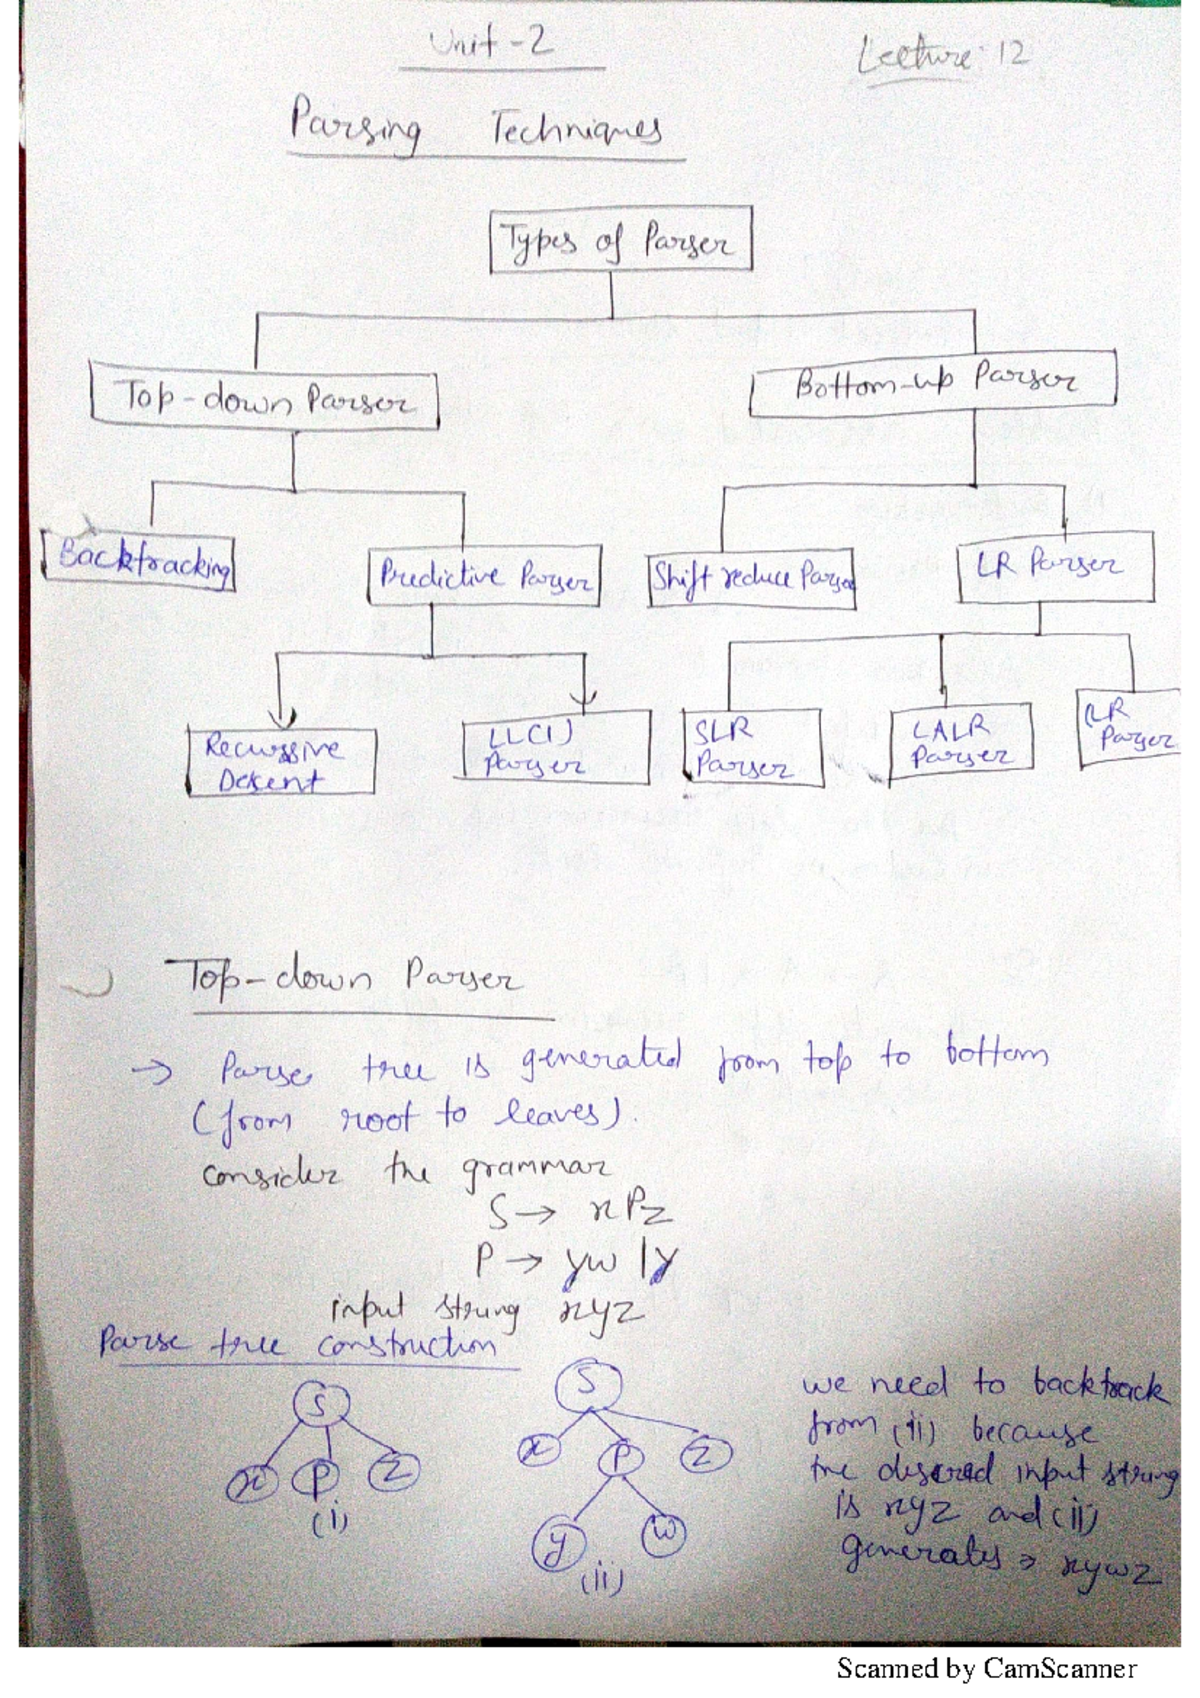 Unit-2
Lecture: 12
Parsing Techniques
Types of Parser
Top-down Parser
Bottom-up Parser
Backtracking
Predictive Parser
Shift reduce Parser
LR Parser
Recursive
Descent
LL(1)
Parser
SLR
Parser
LALR
Parser
LR
Parser
Top-down Parser
→ Parse tree is generated from top to bottom
(from root to leaves).
consider the grammar
S → xPz
P → yw | y
input string xyz
Parse tree construction
S
x P z
(i)
S
x P z
y w
(ii)
we need to backtrack
from (ii) because
the desired input string
is xyz and (ii)
generates → xywz
Scanned by CamScanner